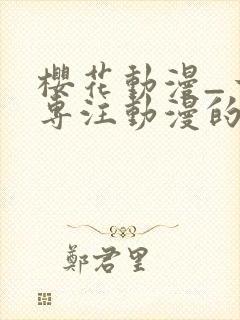 櫻花動漫_
專注動漫的
鄭君里